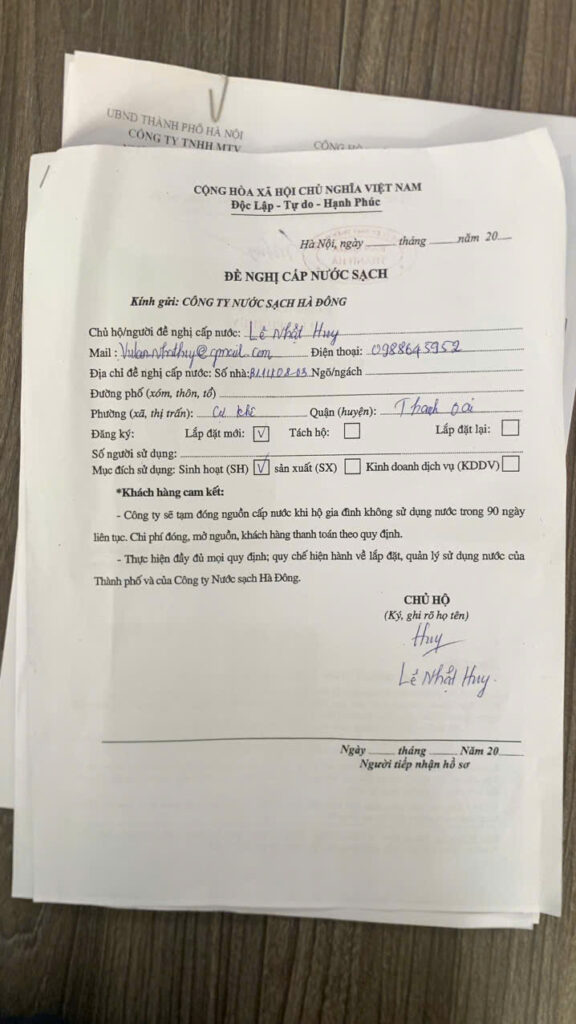 UBND THÀNH PHỐ HÀ NỘI
CÔNG TY TNHH MTV
CỘNG HÒA XÃ HỘI CHỦ NGHĨA VIỆT NAM
Độc Lập - Tự do - Hạnh Phúc
Hà Nội, ngày ...... tháng ...... năm 20....
ĐỀ NGHỊ CẤP NƯỚC SẠCH
Kính gửi: CÔNG TY NƯỚC SẠCH HÀ ĐÔNG
Chủ hộ/người đề nghị cấp nước: Lê Nhật Huy
Mail : Vulannhathuy@gmail.com Điện thoại: 0988645952
Địa chỉ đề nghị cấp nước: Số nhà: Ngõ/ngách
Đường phố (xóm, thôn, tổ)
Phường (xã, thị trấn): Cự Khê Quận (huyện): Thanh Oai
Đăng ký: Lắp đặt mới: V Tách hộ: Lắp đặt lại:
Số người sử dụng:
Mục đích sử dụng: Sinh hoạt (SH) V sản xuất (SX) Kinh doanh dịch vụ (KDDV)
*Khách hàng cam kết:
- Công ty sẽ tạm đóng nguồn cấp nước khi hộ gia đình không sử dụng nước trong 90 ngày
liên tục. Chi phí đóng, mở nguồn, khách hàng thanh toán theo quy định.
- Thực hiện đầy đủ mọi quy định; quy chế hiện hành về lắp đặt, quản lý sử dụng nước của
Thành phố và của Công ty Nước sạch Hà Đông.
CHỦ HỘ
(Ký, ghi rõ họ tên)
Huy
Lê Nhật Huy.
Ngày ...... tháng ...... Năm 20......
Người tiếp nhận hồ sơ